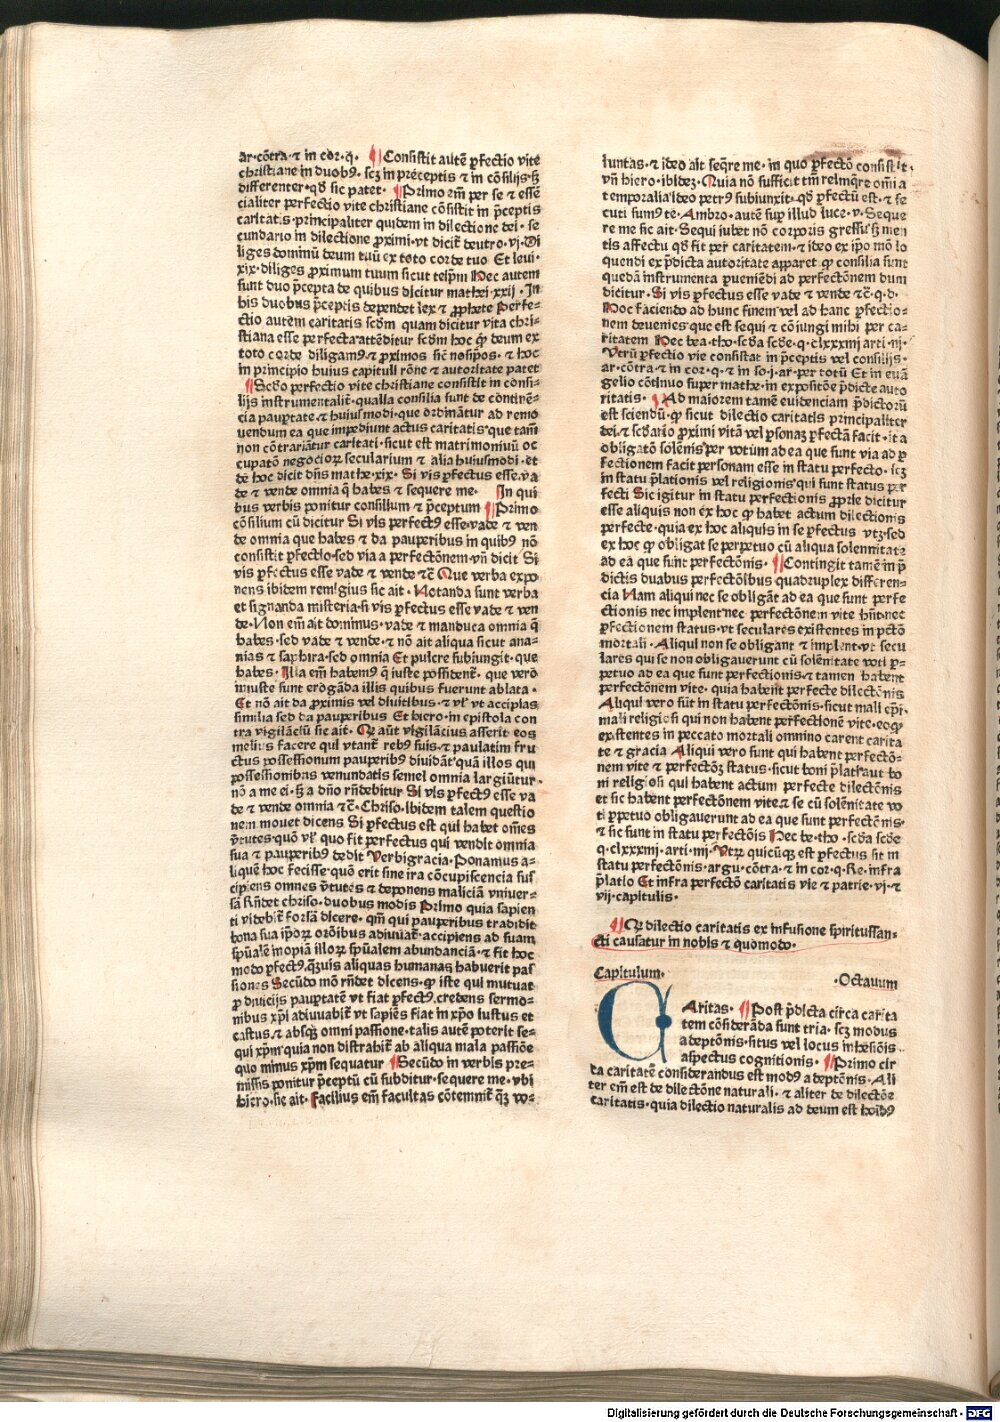 ar·cōtra·⁊ in cor·q̄· ¶ Consistit autē ꝑfectio vite
christiane in duobꝰ· scꝫ in preceptis ⁊ in cōsilijs·sꝫ
differenter·qđ sic patet· ¶ Primo em̄ per se ⁊ essen
cialiter perfectio vite christiane cōsistit in p̄ceptis
caritatis·principaliter quidem in dilectione dei· se
cundario in dilectione ꝓximi·vt dicit̄ deutro·vj·Di
liges dominū deum tuū ex toto corde tuo Et leui·
xix·diliges ꝓximum tuum sicut teip̄m Hec autem
sunt duo p̄cepta de quibus dicitur mathei·xxij· In
his duobus p̄ceptis dependet lex ⁊ ꝓphete Perfe-
ctio autem caritatis scđm quam dicitur vita chri-
stiana esse perfecta·attēditur scđm hoc ꝙ deum ex
toto corde diligamꝰ·⁊ proximos sic̄ nosip̄os· ⁊ hoc
in principio huius capituli rōne ⁊ autoritate patet
¶ Scđo perfectio vite christiane consistit in consi-
lijs instrumentalit̄·qualia consilia sunt de continē-
cia pauꝑtate·⁊ huiusmodi·que ordinātur ad remo
uendum ea que impediunt actus caritatis·que tam̄
non cōtrariātur caritati·sicut est matrimoniuū oc
cupatō negocioꝝ secularium ⁊ alia huiusmodi·et
dē hoc dicit dn̄s mathe·xix· Si vis ꝑfectus esse·va
de ⁊ vende omnia q̄ habes ⁊ sequere me· In qui
bus verbis ponitur consilium ⁊ p̄ceptum ¶ Primo
cōsilium cū dicitur Si vis perfectꝰ esse·vade ⁊ ven
de omnia que habes ⁊ da pauperibus in quibꝰ nō
consistit ꝑfectio·sed via a perfectōnem·vn̄ dicit Si
vis ꝑfectus esse vade ⁊ vende ⁊c̄ Que verba expo
nens ibidem remigius sic ait· Notanda sunt verba
et signanda misteria·si vis ꝑfectus esse vade ⁊ ven
de·Non em̄ ait dominus·vade ⁊ manduca omnia q̄
habes·sed vade ⁊ vende·⁊ nō ait aliqua sicut ana-
nias ⁊ saphira·sed omnia Et pulcre subiungit·que
habes· Illa em̄ habemꝰ q̄ iuste possident̄· que vero
iniuste sunt erogāda illis quibus fuerunt ablata·
Et nō ait da ꝓximis vel diuitibus·⁊ vl̄ vt accipias
similia sed da pauperibus Et hiero·in epistola con
tra vigilāciū sic ait· Qꝛ aūt vigilācius asserit eos
melius facere qui vtant̄ rebꝰ suis·⁊ paulatim fru
ctus possessionum pauperibꝰ diuidāt·quā illos qui
possessionibus venundatis semel omnia largiūtur·
nō a me ei·sꝫ a dn̄o rn̄debitur Si vis ꝑfectꝰ esse va
de ⁊ vende omnia ⁊c̄· Chriso·ibidem talem questio
nem mouet dicens Si ꝑfectus est qui habet om̄es
v̄tutes·quō vl̄ quo fit perfectus qui vendit omnia
sua ⁊ pauperibꝰ dedit Verbigracia·Ponamus a-
liquē hoc fecisse·quō erit sine ira cōcupiscencia sus
cipiens omnes v̄tutes ⁊ deponens maliciā vniuer-
sā Rn̄det chriso·duobus modis Primo quia sapien
ti videbit̄ forsā dicere· qm̄ qui pauperibus tradidit
bona sua ip̄oꝝ orōibus adiuuat̄·accipiens ad suam
sp̄ualē inopiā illoꝝ sp̄ualem abundanciā·⁊ fit hoc
modo ꝑfectꝰ·q̄ꝫuis aliquas humanas habuerit pas
siones Secūdo mō rn̄det dicens·ꝙ iste qui mutuat
ꝓ diuicijs pauꝑtatē vt fiat ꝑfectꝰ·credens sermo-
nibus xp̄i adiuuabit̄ vt sapiēs fiat in xp̄o iustus et
castus·⁊ absqꝫ omni passione·talis autē poterit se-
qui xp̄m·quia non distrahit̄ ab aliqua mala passiōe
quo minus xp̄m sequatur ¶ Secūdo in verbis pre-
missis ponitur p̄ceptū cū subditur·sequere me·vbi
hiero·sic ait· Facilius em̄ facultas cōtemnit̄ q̄ꝫ vo-
luntas·⁊ ideo ait seq̄re me·in quo ꝑfectō consistit·
vn̄ hiero·ibideꝫ· Quia nō sufficit tm̄ relinq̄re om̄ia
temporalia·ideo petrꝰ subiunxit·qđ ꝑfectū est·⁊ se
cuti sumꝰ te·Ambro·autē suꝑ illud luce·v·Seque
re me sic ait·Sequi iubet nō corporis gressu·sꝫ men
tis affectu qđ fit per caritatem·⁊ ideo ex ip̄o mō lo
quendi ex p̄dicta autoritate apparet ꝙ consilia sunt
quedā instrumenta ꝑueniēdi ad perfectōnem dum
dicitur·Si vis ꝑfectus esse vade ⁊ vende ⁊c̄·q·d·
Hoc faciendo ad hunc finem vel ad hanc ꝑfectio-
nem deuenies·que est sequi ⁊ cōiungi mihi per ca-
ritatem Hec bea·tho·scđa scđe·q·clxxxiij arti·iij·
Vtrū ꝑfectio vie consistat in p̄ceptis vel consilijs·
ar·cōtra·⁊ in cor·q·⁊ in so·j·ar·per totū Et in euā
gelio cōtinuo super mathe·in expositōe p̄dicte auto
ritatis· ¶ Ad maiorem tamē euidenciam p̄dictorū
est sciendū·ꝙ sicut dilectio caritatis principaliter
dei·⁊ scđario ꝓximi vitā vel ꝑsonaꝫ ꝑfectā facit·ita
obligatō solēnis·per votum ad ea que sunt via ad ꝑ
fectionem facit personam esse in statu perfecto·scꝫ
in statu p̄lationis vel religionis·qui sunt status per
fecti Sic igitur in statu perfectionis ꝓprie dicitur
esse aliquis non ex hoc ꝙ habet actum dilectionis
perfecte·quia ex hoc aliquis in se ꝑfectus vtꝫ·sed
ex hoc ꝙ obligat se perpetuo cū aliqua solennitate
ad ea que sunt perfectōnis· ¶ Contingit tamē in p̄
dictis duabus perfectōibus quadruplex differen-
cia Nam aliqui nec se obligāt ad ea que sunt perfe
ctionis nec implent·nec perfectōnem vite hn̄t·nec
ꝑfectionem status·vt seculares existentes in pctō
mortali·Aliqui non se obligant ⁊ implent·vt secu
lares qui se non obligauerunt cū solēnitate voti ꝑ-
petuo ad ea que sunt perfectionis·⁊ tamen habent
perfectōnem vite· quia habent perfecte dilectōnis
Aliqui vero sūt in statu perfectōnis·sicut mali ep̄i·
mali religiosi qui non habent perfectionē vite·eo ꝙ
existentes in peccato mortali omnino carent carita
te ⁊ gracia Aliqui vero sunt qui habent perfectō-
nem vite ⁊ perfectōꝫ status·sicut boni p̄lati·aut bo
ni religiosi qui habent actum perfecte dilectōnis
et sic habent perfectōnem vite·⁊ se cū solēnitate vo
ti ꝑpetuo obligauerunt ad ea que sunt perfectōnis·
⁊ sic sunt in statu perfectōis Hec be·tho·scđa scđe
q·clxxxiiij·arti·iiij·Vtꝝ quicūqꝫ est ꝑfectus sit in
statu perfectōnis·argu·cōtra·⁊ in cor·q·Re·infra
p̄latio Et infra perfectō caritatis vie ⁊ patrie·vj·⁊
vij·capitulis·
¶ Qꝛ dilectio caritatis ex infusione spiritussan-
cti causatur in nobis ⁊ quomodo·
Capitulum· ·Octauum
CAritas· ¶ Post p̄dicta circa carita
tem cōsiderāda sunt tria·scꝫ modus
adeptōnis·situs vel locus inhesiōis
aspectus cognitionis· ¶ Primo cir
ca caritatē considerandus est modꝰ adeptōnis·Ali
ter em̄ est de dilectōne naturali·⁊ aliter de dilectōe
caritatis·quia dilectio naturalis ad deum est hoībꝰ